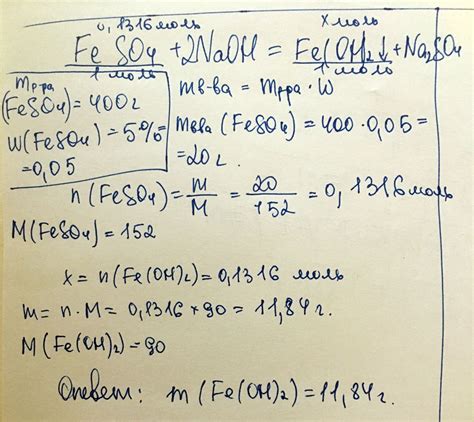 0,1316 моль x моль
FeSO4 + 2NaOH = Fe(OH)2↓ + Na2SO4
1 моль 1 моль
m р-ра (FeSO4) = 400 г
m в-ва = m р-ра · W
W(FeSO4) = 5% = 0,05
m в-ва (FeSO4) = 400 · 0,05 =
= 20 г.
n (FeSO4) = m/M = 20/152 = 0,1316 моль
M(FeSO4) = 152
x = n(Fe(OH)2) = 0,1316 моль
m = n · M = 0,1316 * 90 = 11,84 г.
M(Fe(OH)2) = 90
Ответ: m (Fe(OH)2) = 11,84 г.